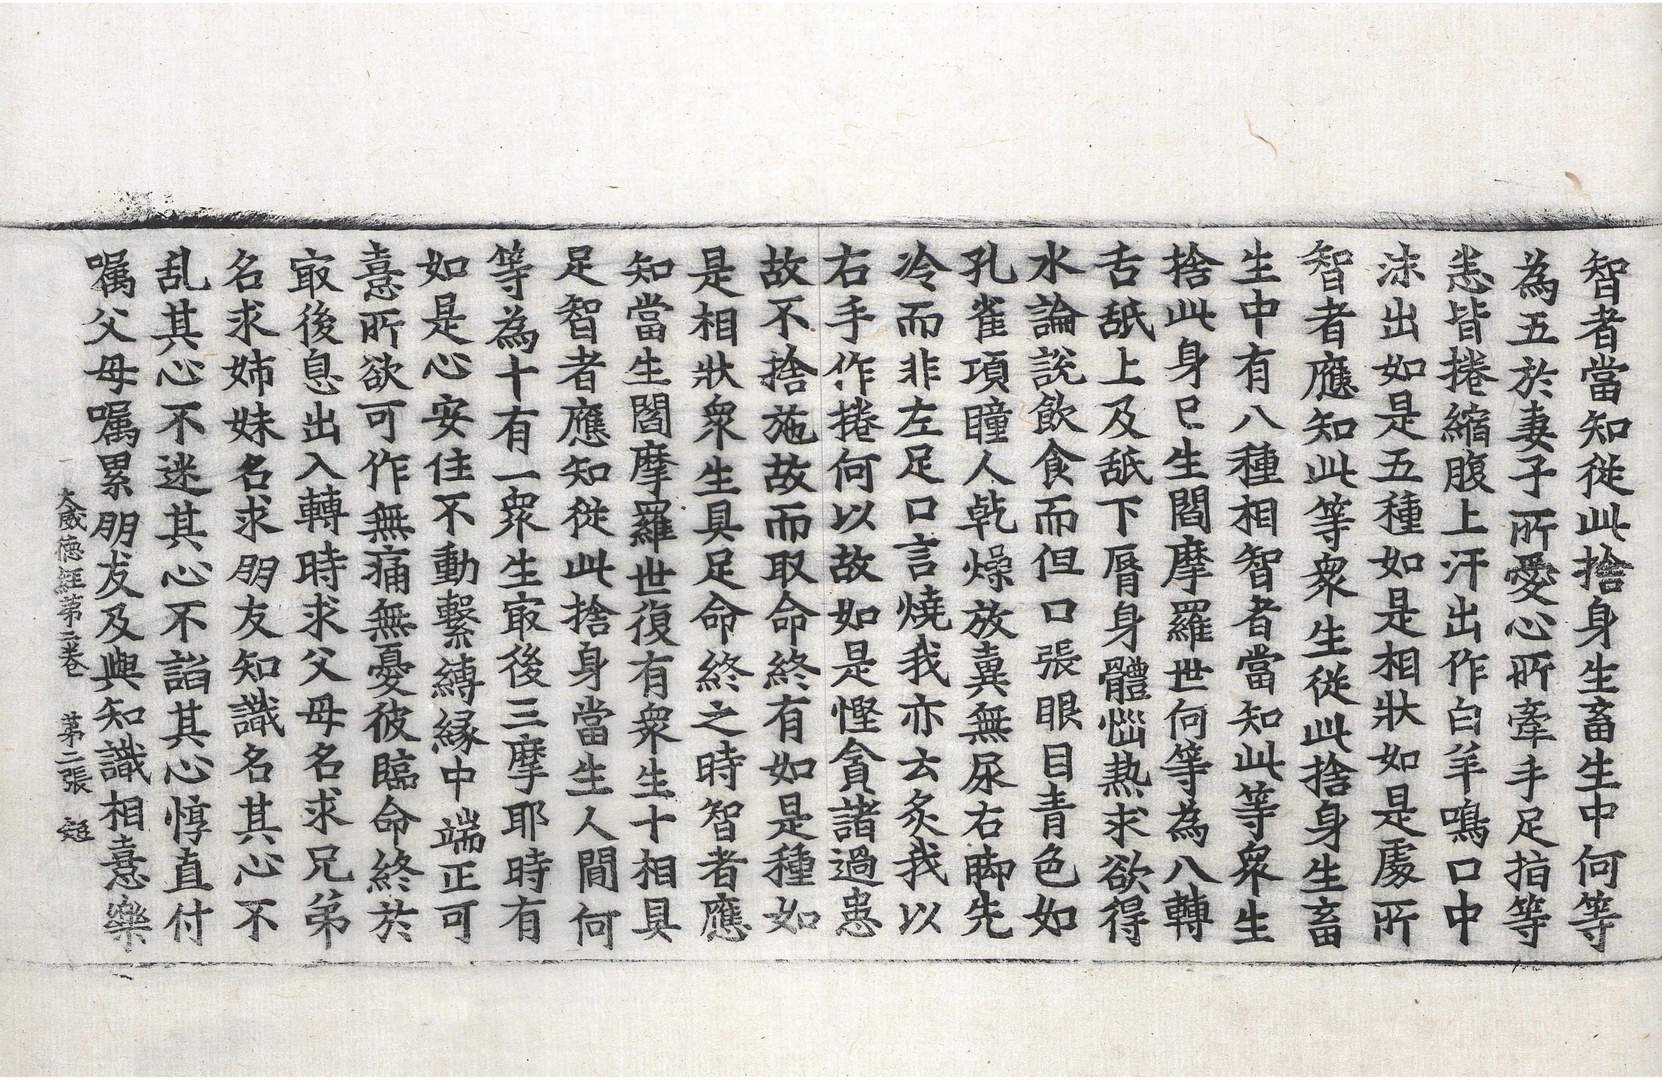 智者當知從此捨身生畜生中何等
為五於妻子所愛心所牽手足指等
悉皆捲縮腹上汗出作白羊鳴口中
沫出如是五種如是相狀如是處所
智者應知此等衆生從此捨身生畜
生中有八種相智者當知此等衆生
捨此身已生閻摩羅世何等為八轉
舌舐上及舐下脣身體惱熱求欲得
水論說飲食而但口張眼目青色如
孔雀項瞳人乾燥放糞無尿右脚先
冷而非左足口言燒我亦云炙我以
右手作捲何以故如是慳貪諸過患
故不捨施故而取命終有如是種如
是相狀衆生具足命終之時智者應
知當生閻摩羅世復有衆生十相具
足智者應知從此捨身當生人間何
等為十有一衆生㝡後三摩耶時有
如是心安住不動繫縛縁中端正可
憙所欲可作無痛無憂彼臨命終於
㝡後息出入轉時求父母名求兄弟
名求姉妹名求朋友知識名其心不
乱其心不迷其心不諂其心惇直付
嘱父母嘱累朋友及與知識相憙樂
大威德經第二卷 第二張 㢠